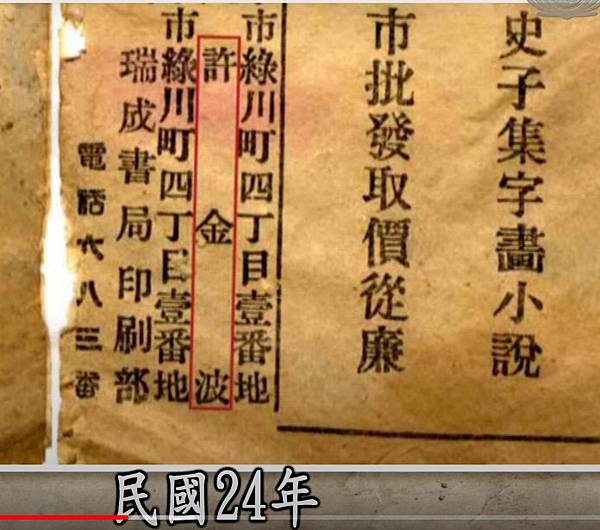 史子集字畫小說
市批發取價從廉
市綠川町四丁目壹番地
許金波
市綠川町四丁目壹番地
瑞成書局印刷部
電話六八三番
民國24年